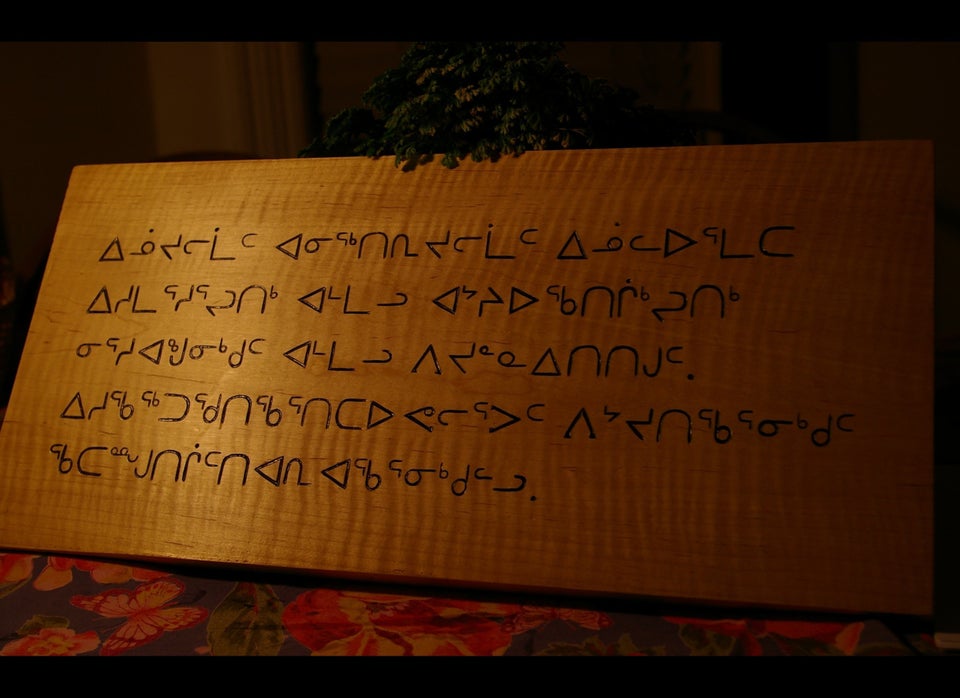 ᐃᓅᔪᓕᒫᑦ ᐊᓂᖅᑎᕆᔪᓕᒫᑦ ᐃᓅᓚᐅᕐᒪᑕ
ᐃᓱᒪᕐᓱᕐᑐᑎᒃ ᐊᒻᒪᓗ ᐊᔾᔨᐅᖃᑎᒌᒃᑐᑎᒃ
ᓂᕐᓱᐊᖑᓂᒃᑯᑦ ᐊᒻᒪᓗ ᐱᔪᓐᓇᐃᑎᑎᒍᑦ.
ᐃᓱᖃᖅᑐᖁᑎᖃᕐᑎᑕᐅᕙᓕᕐᐳᑦ ᐱᔾᔪᑎᖃᕐᓂᒃᑯᑦ
ᖃᑕᙳᑎᒌᑦᑎᐊᕆ ᐊᖃᕐᓂᒃᑯᓪᓗ.